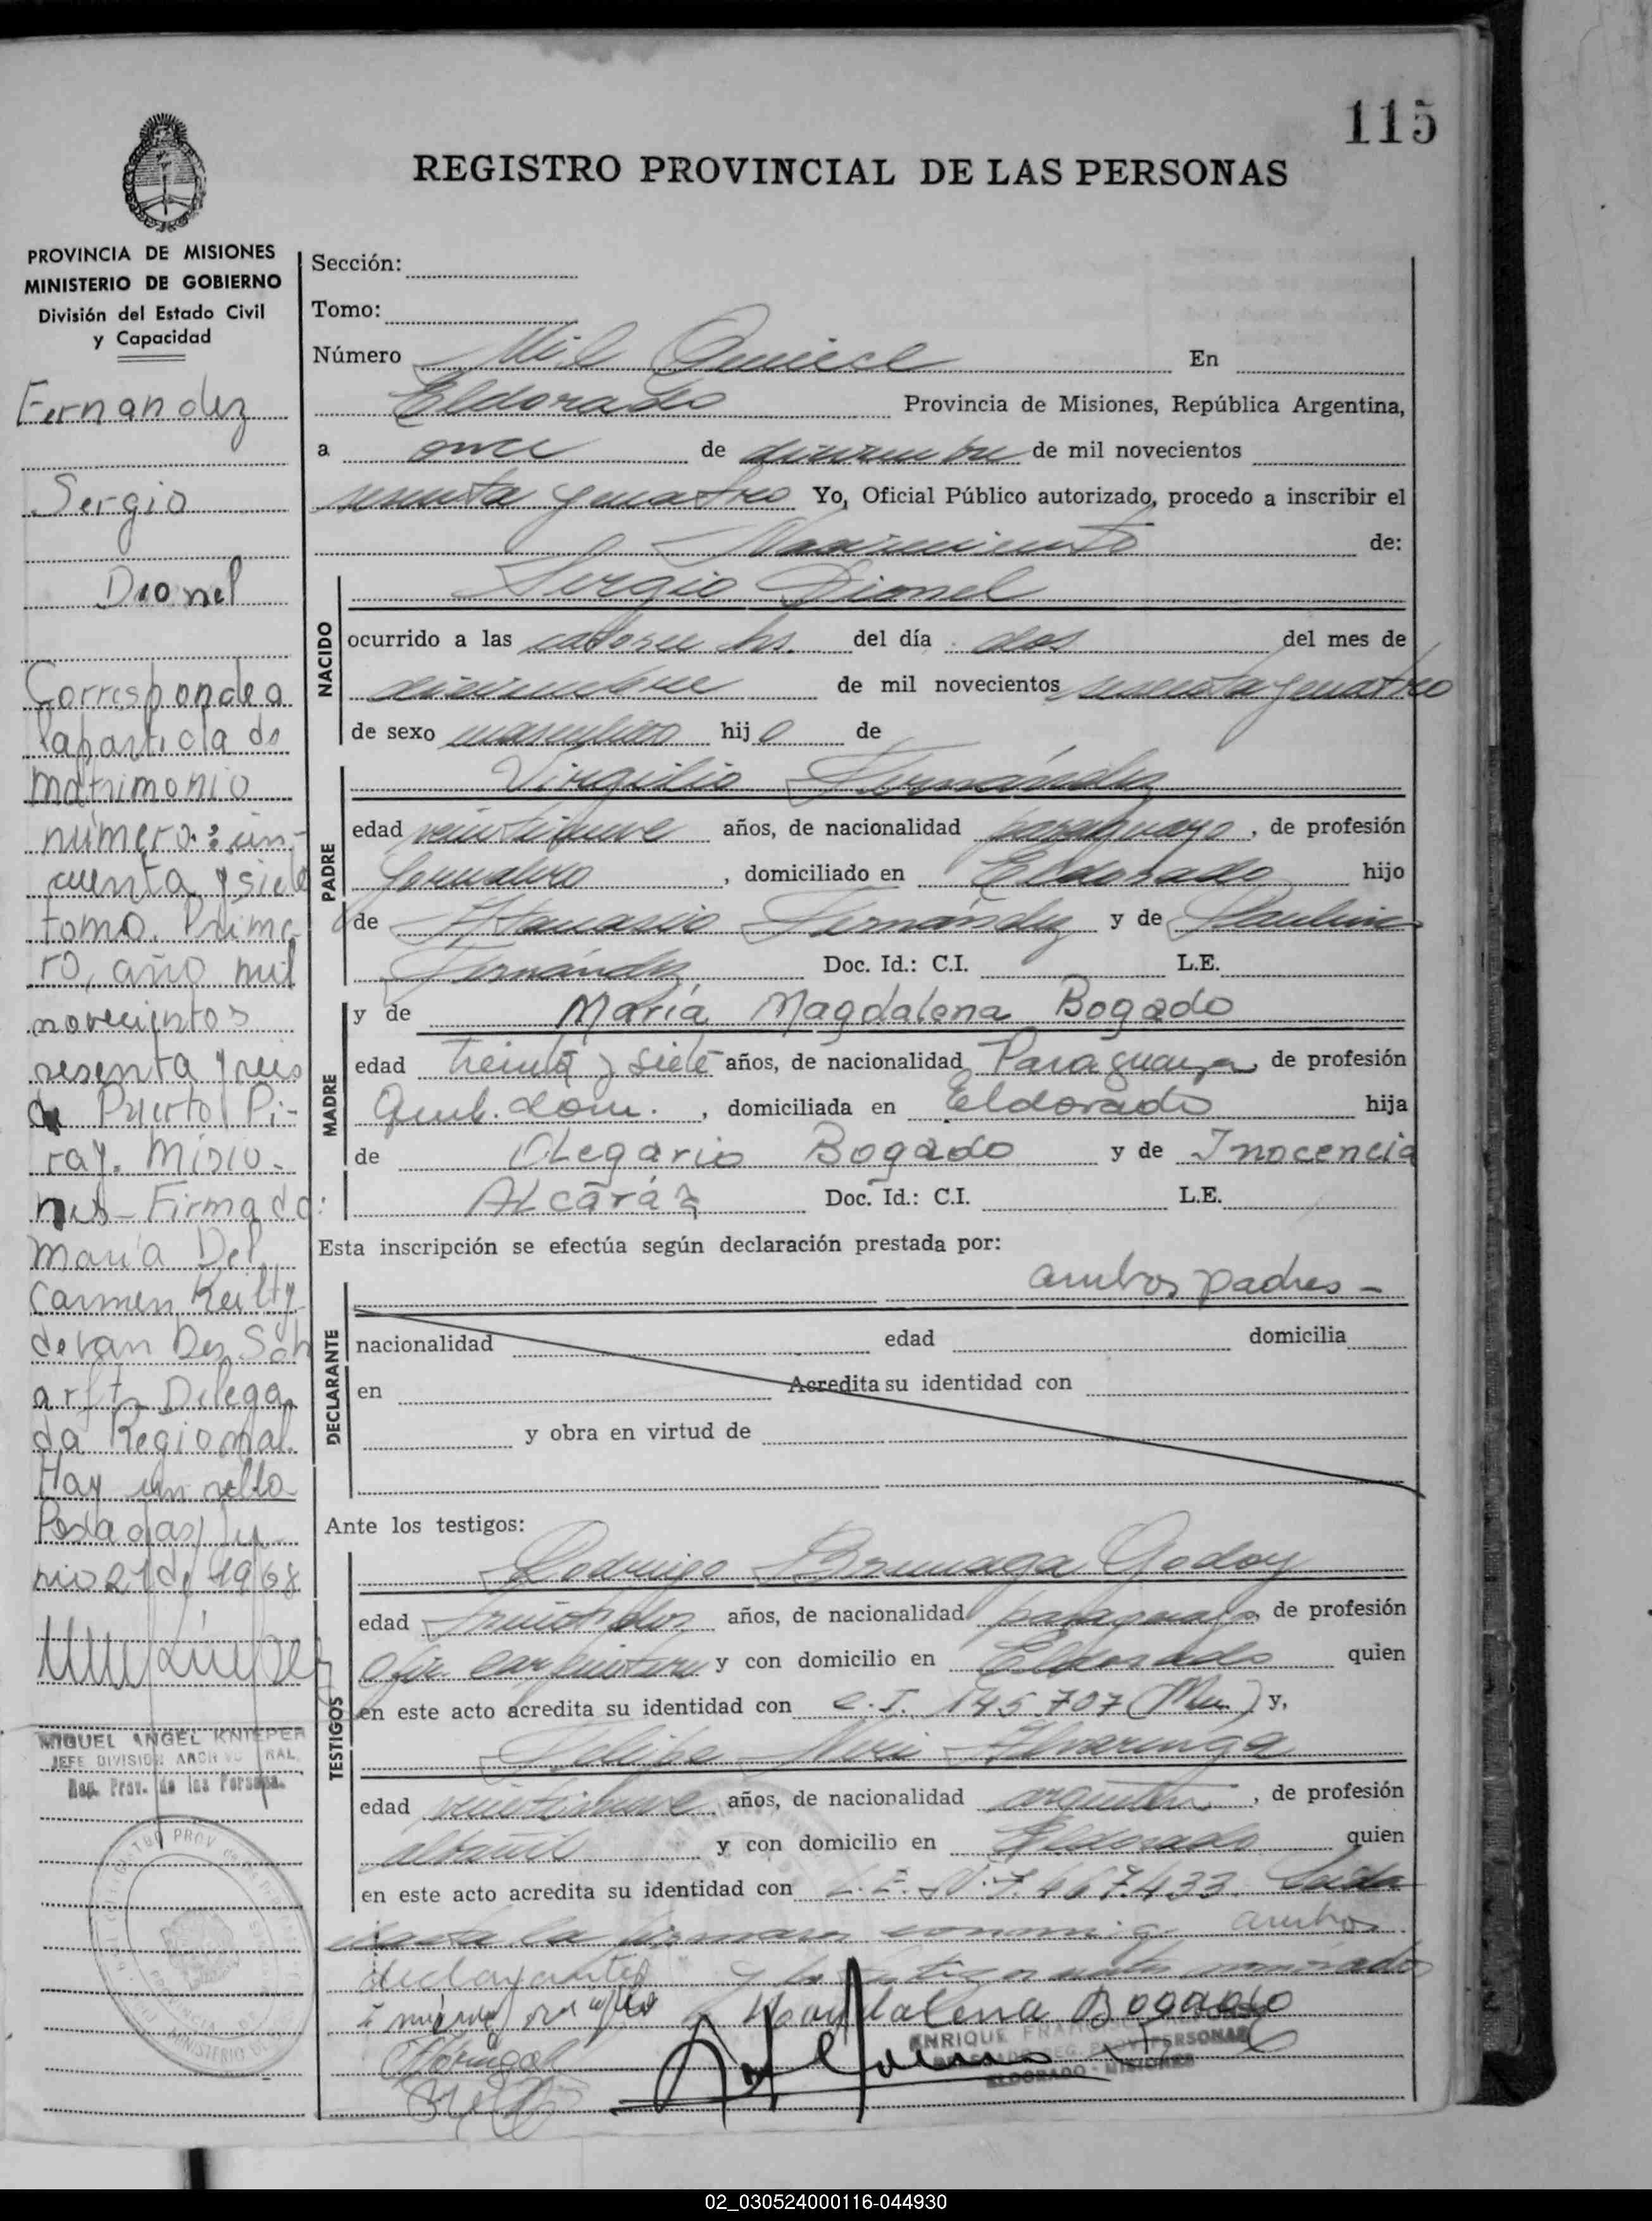 115
REGISTRO PROVINCIAL DE LAS PERSONAS
PROVINCIA DE MISIONES
MINISTERIO DE GOBIERNO
División del Estado Civil
y Capacidad
Fernandez
Sergio
Dionel
Corresponde a
la partida de
matrimonio
número: cin-
cuenta y siete
tomo. Prime-
ro, año mil
novecientos
sesenta y seis
de Puerto Pi-
ray. Misio-
nes - Firmado:
María Del
Carmen Keilty
de van Der Sch
arft Delega
da Regional.
Hay un sello
Posadas, Ju-
nio 21 de 1968
MIGUEL ANGEL KNIEPER
JEFE DIVISION ARCH RAL.
Reg. Prov. de las Persona.
Sección:
Tomo:
Número Mil Quince En
Eldorado Provincia de Misiones, República Argentina,
a once de diciembre de mil novecientos
sesenta y cuatro Yo, Oficial Público autorizado, procedo a inscribir el
Nacimiento de:
NACIDO
Sergio Dionel
ocurrido a las catorce hs. del día dos del mes de
diciembre de mil novecientos sesenta y cuatro
de sexo masculino hijo de
PADRE
Virgilio Fernández
edad veintinueve años, de nacionalidad paraguayo, de profesión
Jornalero, domiciliado en Eldorado hijo
de Atanascio Fernández y de Paulina
Fernández Doc. Id.: C.I. L.E.
MADRE
y de María Magdalena Bogado
edad treinta y siete años, de nacionalidad Paraguaya, de profesión
Queh. dom., domiciliada en Eldorado hija
de Olegario Bogado y de Inocencia
Alcaráz Doc. Id.: C.I. L.E.
Esta inscripción se efectúa según declaración prestada por:
ambos padres -
DECLARANTE
nacionalidad edad domicilia
en Acredita su identidad con
y obra en virtud de
Ante los testigos:
TESTIGOS
Rodrigo Brumaga Godoy
edad treintidos años, de nacionalidad paraguayo, de profesión
ofic. carpintero y con domicilio en Eldorado quien
en este acto acredita su identidad con C.I. 145.707 y,
Felipe Neri Almeringa
edad veintinueve años, de nacionalidad argentino, de profesión
albañil y con domicilio en Eldorado quien
en este acto acredita su identidad con L.E. N. 7.467.433. Leida
el acta la firmaron conmigo ambos
declarantes y los testigos antes nombrados
Magdalena Bogado
ENRIQUE
REG. PROV. PERSONAS
ELDORADO - MISIONES
02_030524000116-044930